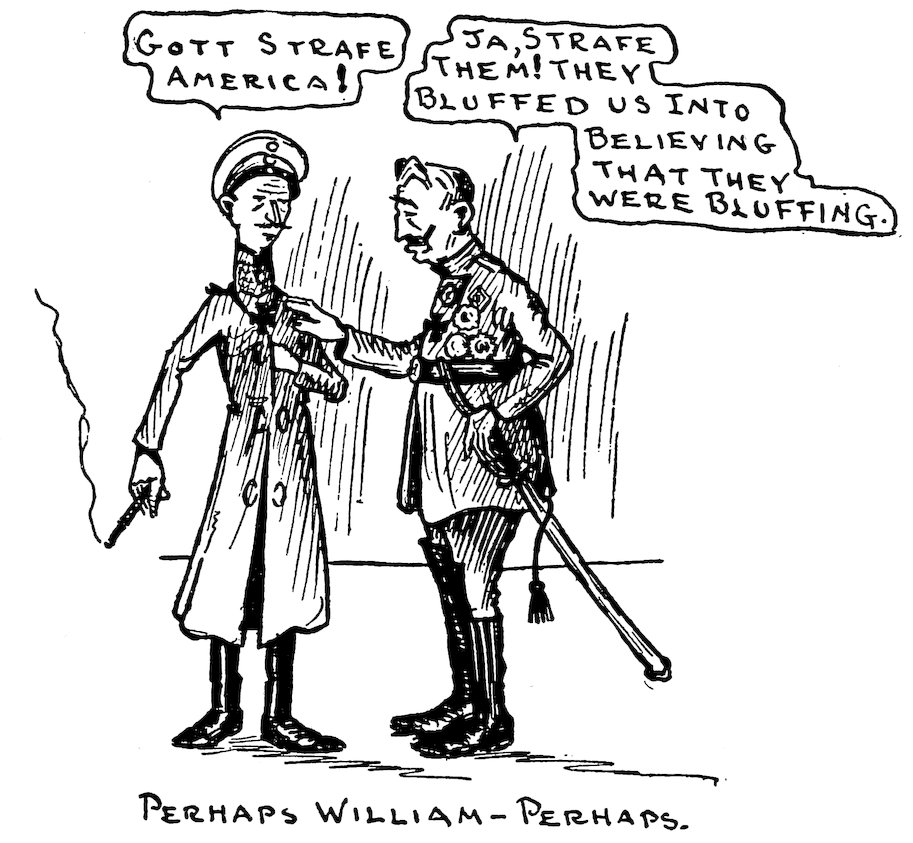 GOTT STRAFE
AMERICA!
JA, STRAFE
THEM! THEY
BLUFFED US INTO
BELIEVING
THAT THEY
WERE BLUFFING.
PERHAPS WILLIAM – PERHAPS.